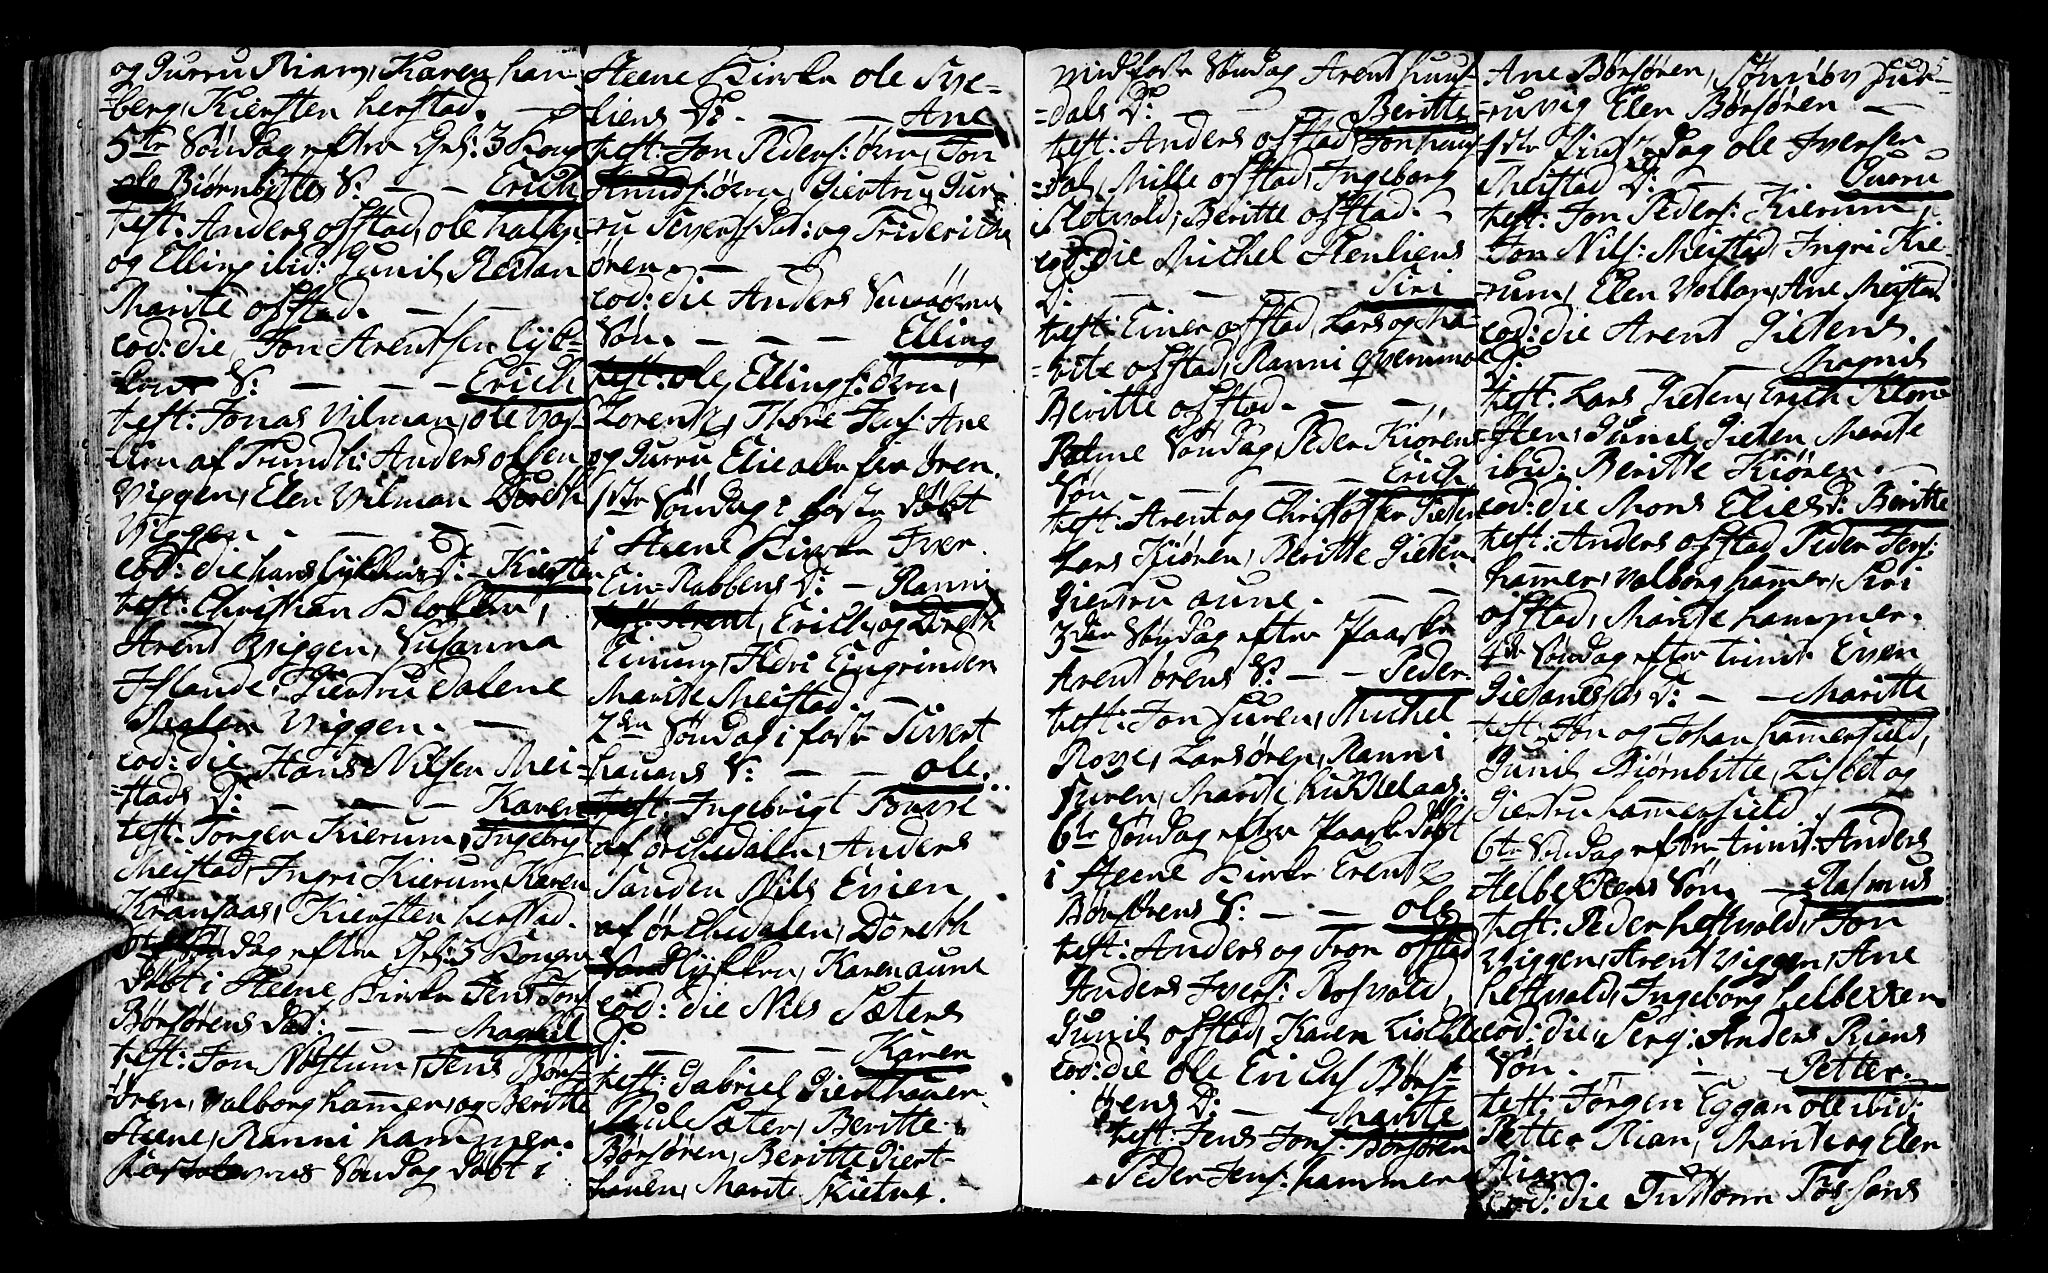 og Gurru Rian, Karen han-
-berg, Kiersten herstad. —
5te Søndag efter Hel: 3 Kong
ole Biørnbittes S: — — Erich
test: Anders ofstad, ole
og Elling ibid: Gunild Reitan
Marite ofstad. — —
eod: die, Jon Arentsen lyk-
S: — — — Erich
test: Jonas Vilman, ole
af Trundh: Anders olsen
Viggen, Elen Vilman Doreth
Viggen — — —
eod: die hans lykkens D: — Kiersten
test: Christian
Arent Viggen, Susanna
Giertru dalene
Malen Viggen. —
eod: die Hans Nilsen Mei-
-stads D: — — — Karen
test: Jørgen Kierum, Ingebrigt
Meistad, Ingri Kierum, Karen
Kransaas, Kiersten herstad.
6te Søndag efter Hel: 3 Konger
Døbt i Steene Kirke Jens Jons
Børsørens Dat: — — Magnil
test: Jon Nøstum, Jens Børs-
-øren, Valborg hammer, og Beritte
Steene, Ranni hammer.
Søndag Døbt i
Steene Kirke ole Sve-
-liens D: — — Ane
test: Jon Peders: øren, Jon
Knuds: øren, Giertru, Gur-
-ru Siversdat: og Friderich
ören. — —
eod: die Anders
Søn. — — — Elling
test: ole Ellings: øren,
Lorentz, Thore Jens: Ane
og Gurru Elie alle fra ören.
1ste Søndag i faste Døbt
i Steene Kirke Iver
Ein-Rabbens D: — Ranni
test: Arent, Erich og Doreth
Einum, Eingrinden
Marite Meistad. —
2den Søndag i faste Sivert
hauans S: — — ole.
test: Ingebrigt
af örchedalen, Anders
Sanden Nils Evien
af örchedalen, Doreth
lykken, Karen aune
eod: die Nils Sæters
D: — — — Karen
test: Gabriel Gierthauen
Sæter, Beritte
Børsøren, Beritte Giert-
-hauen, Marite Skietne.
Midfaste Søndag Arent
-dals D: — — Beritte
test: Anders ofstad, Jon
-dal, Mille ofstad, Ingeborg
Slotvold, Beritte ofstad. —
eod: die Michel Stenliens
D: — — — Siri
test: Einer ofstad, Lars og Ma-
-rite ofstad, Ranni qvemmo
Beritte ofstad. — —
Palme Søndag, Peder Kiörens
Søn — — — Erich
test: Arent og Christoffer Gieten
Lars Kiören, Beritte Gieten
Giertru aune. — —
3den Søndag efter Paaske
Arent ørens S: — — Peder
test: Jon Suren, Michel
Roye, Lars øren, Ranni
Suren, Marit i
6te Søndag efter Paaske Døbt
i Steene Kirke Erent
Børsørens S: — — ole
test: Anders og Tron ofstad
Anders Ivers: Rosvold,
Gunild ofstad, Karen
eod: die ole Erichs Børs-
ørens D: — Marite
test: Jens Jons: Børsøren
Peder Jens: hammer
Ane Børsøren,
Elen Børsøren —
1ste Dag ole Iversen
Meistad D: — — Gurru
test: Jon Peders: Kierum,
Jon Nils: Meistad, Ingri Kie-
-rum, Elen Vollan, Ane Meistad
eod: die Arent Gietens
D: — — — Magnil
test: Lars Gieten, Erich
Gunil Gieten Marite
ibid: Beritte Kiören.
eod: die Mons Elies D: Beritte
test: Anders ofstad Peder Jens:
hammer, Valborg hammer, Siri
ofstad, Marite hammer.
4de Søndag efter trinit: Even
D: — — Maritte
test: Jon og Johan hammersfield,
Gunild Biørnbitte, Lisbet og
Giertru hammersfield. —
6te Søndag efter trinit: Anders
Helbekkens Søn — Rasmus
test: Peder heftvold, Jon
Viggen, Arent Viggen, Ane
heftvold, Ingeborg helbekken
eod: die, Serg: Anders Rians
Søn. — — Petter.
test: Jørgen Eggan ole ibid:
Petter Rian, Marit og Elen
Rian
eod: die Tossons